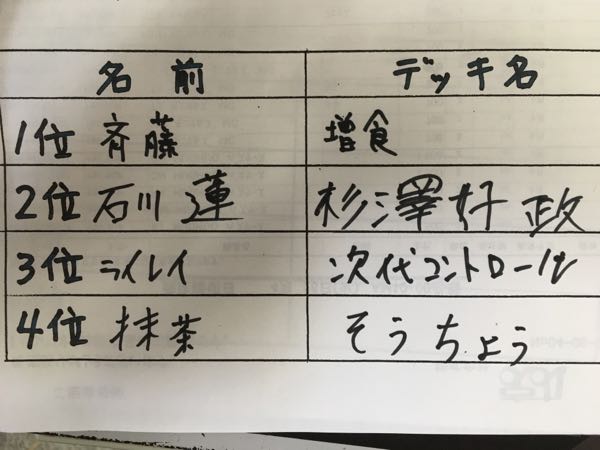 名前 デッキ名
1位 斉藤 増食
2位 石川 蓮 杉澤好政
3位 ライレイ 次代コントロール
4位 抹茶 そうちょう